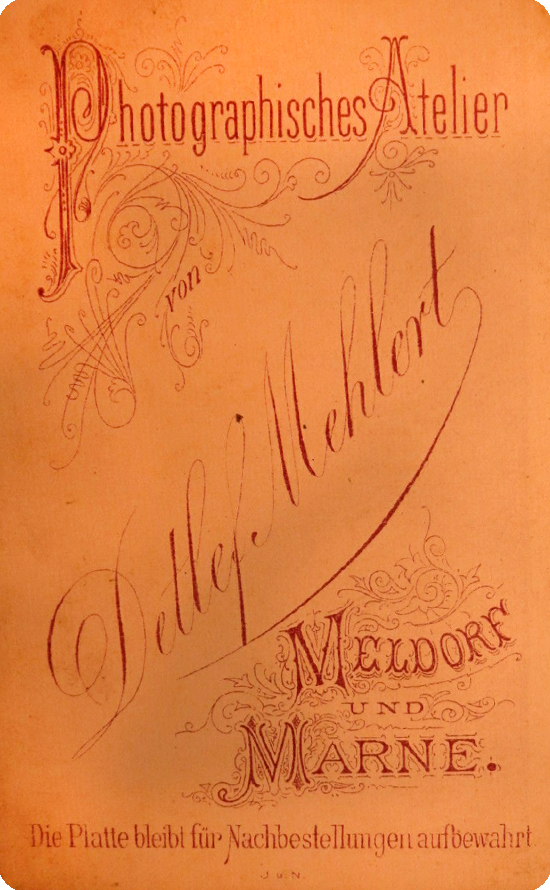 Photographisches Atelier
von
Detlef Mehlert
MELDORF
UND
MARNE.
Die Platte bleibt für Nachbestellungen aufbewahrt.
J u N.